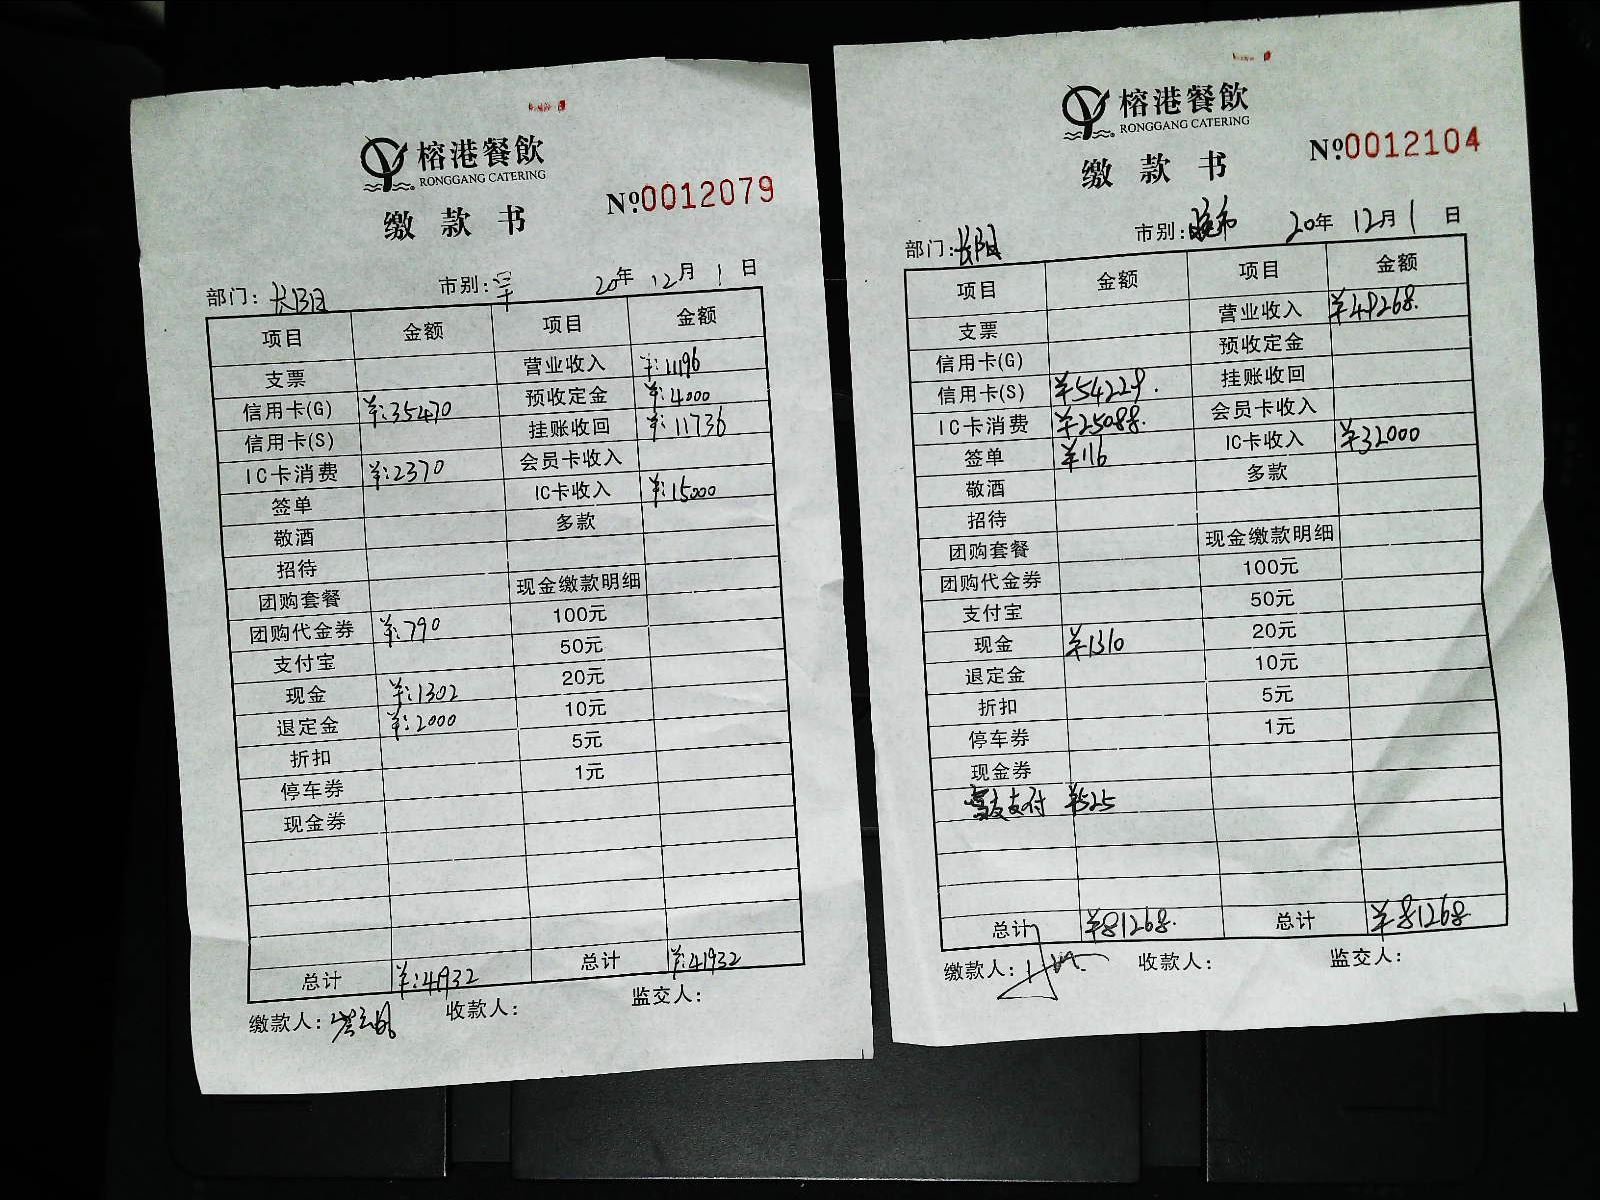 榕港餐飲
RONGGANG CATERING
缴款书
№0012079
部门：长阳 市别：早 20年 12月 1日
项目 金额 项目 金额
支票 营业收入 ¥:11196
信用卡(G) ¥:35470 预收定金 ¥:4000
信用卡(S) 挂账收回 ¥:11736
IC卡消费 ¥:2370 会员卡收入
签单 IC卡收入 ¥:15000
敬酒 多款
招待
团购套餐 现金缴款明细
团购代金券 ¥:790 100元
支付宝 50元
现金 ¥:1302 20元
退定金 ¥:2000 10元
折扣 5元
停车券 1元
现金券
总计 ¥:41932 总计 ¥:41932
缴款人： 收款人： 监交人：
榕港餐飲
RONGGANG CATERING
缴款书
№0012104
部门：长阳 市别：晚市 20年 12月 1日
项目 金额 项目 金额
支票 营业收入 ¥49268.
信用卡(G) 预收定金
信用卡(S) ¥54229. 挂账收回
IC卡消费 ¥25088. 会员卡收入
签单 ¥116 IC卡收入 ¥32000
敬酒 多款
招待
团购套餐 现金缴款明细
团购代金券 100元
支付宝 50元
现金 ¥1310 20元
退定金 10元
折扣 5元
停车券 1元
现金券
支付 ¥525
总计 ¥81268. 总计 ¥81268.
缴款人： 收款人： 监交人：